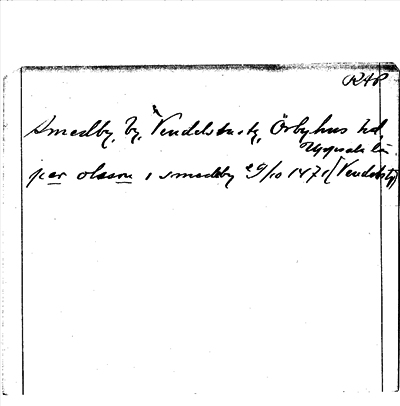 RAP
Smedby, by, i Vendels sn, Örbyhus hd,
Uppsala län.
per olsson i smedby 29/10 1471 (Vendels sn)